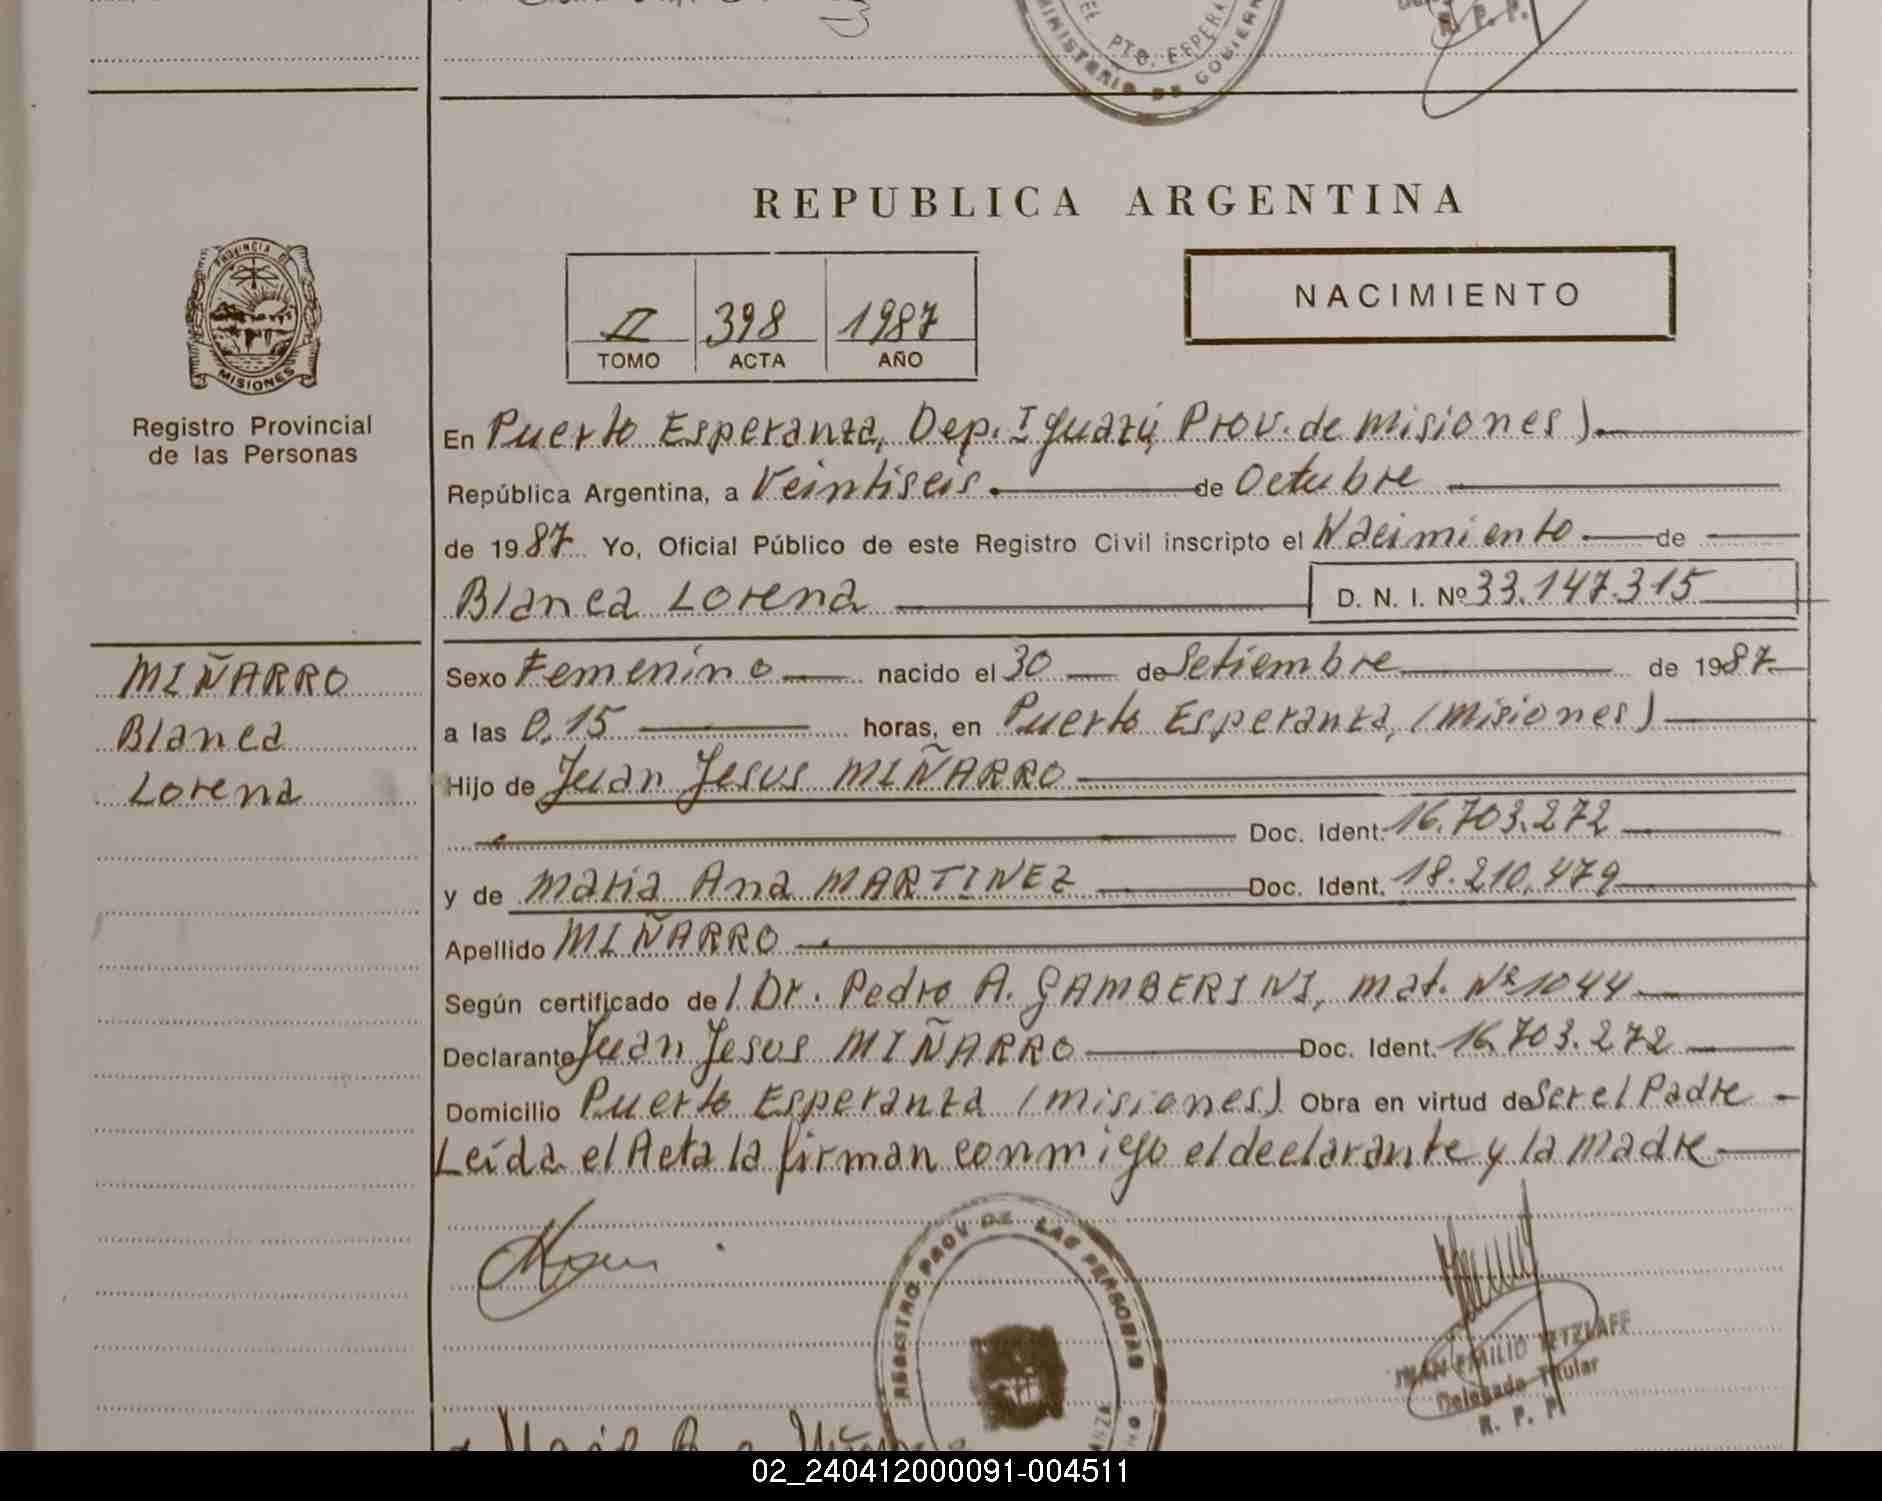 PTO. ESPERA
MINISTERIO DE GOBIERN
R. P. P.
REPUBLICA ARGENTINA
PROVINCIA DE
MISIONES
Registro Provincial
de las Personas
II 398 1987
TOMO ACTA AÑO
NACIMIENTO
En Puerto Esperanza, Dep. Iguazú, Prov. de Misiones).
República Argentina, a Veintiseis de Octubre
de 1987 Yo, Oficial Público de este Registro Civil inscripto el Nacimiento de
Blanca Lorena D. N. I. Nº 33.147.315
MIÑARRO
Blanca
Lorena
Sexo Femenino nacido el 30 de Setiembre de 1987
a las 0,15 horas, en Puerto Esperanza, (Misiones)
Hijo de Juan Jesus MIÑARRO
Doc. Ident. 16.703.272
y de Maria Ana MARTINEZ Doc. Ident. 18.210.479
Apellido MIÑARRO
Según certificado de / Dr. Pedro A. GAMBERINI, mat. Nº 1044
Declarante Juan Jesus MIÑARRO Doc. Ident. 16.703.272
Domicilio Puerto Esperanza (Misiones) Obra en virtud de Ser el Padre -
Leída el Acta la firman conmigo el declarante y la Madre
REGISTRO PROV DE LAS PERSONAS
JUAN EMILIO TETZLAFF
Delegado Titular
R. P. P.
02_240412000091-004511